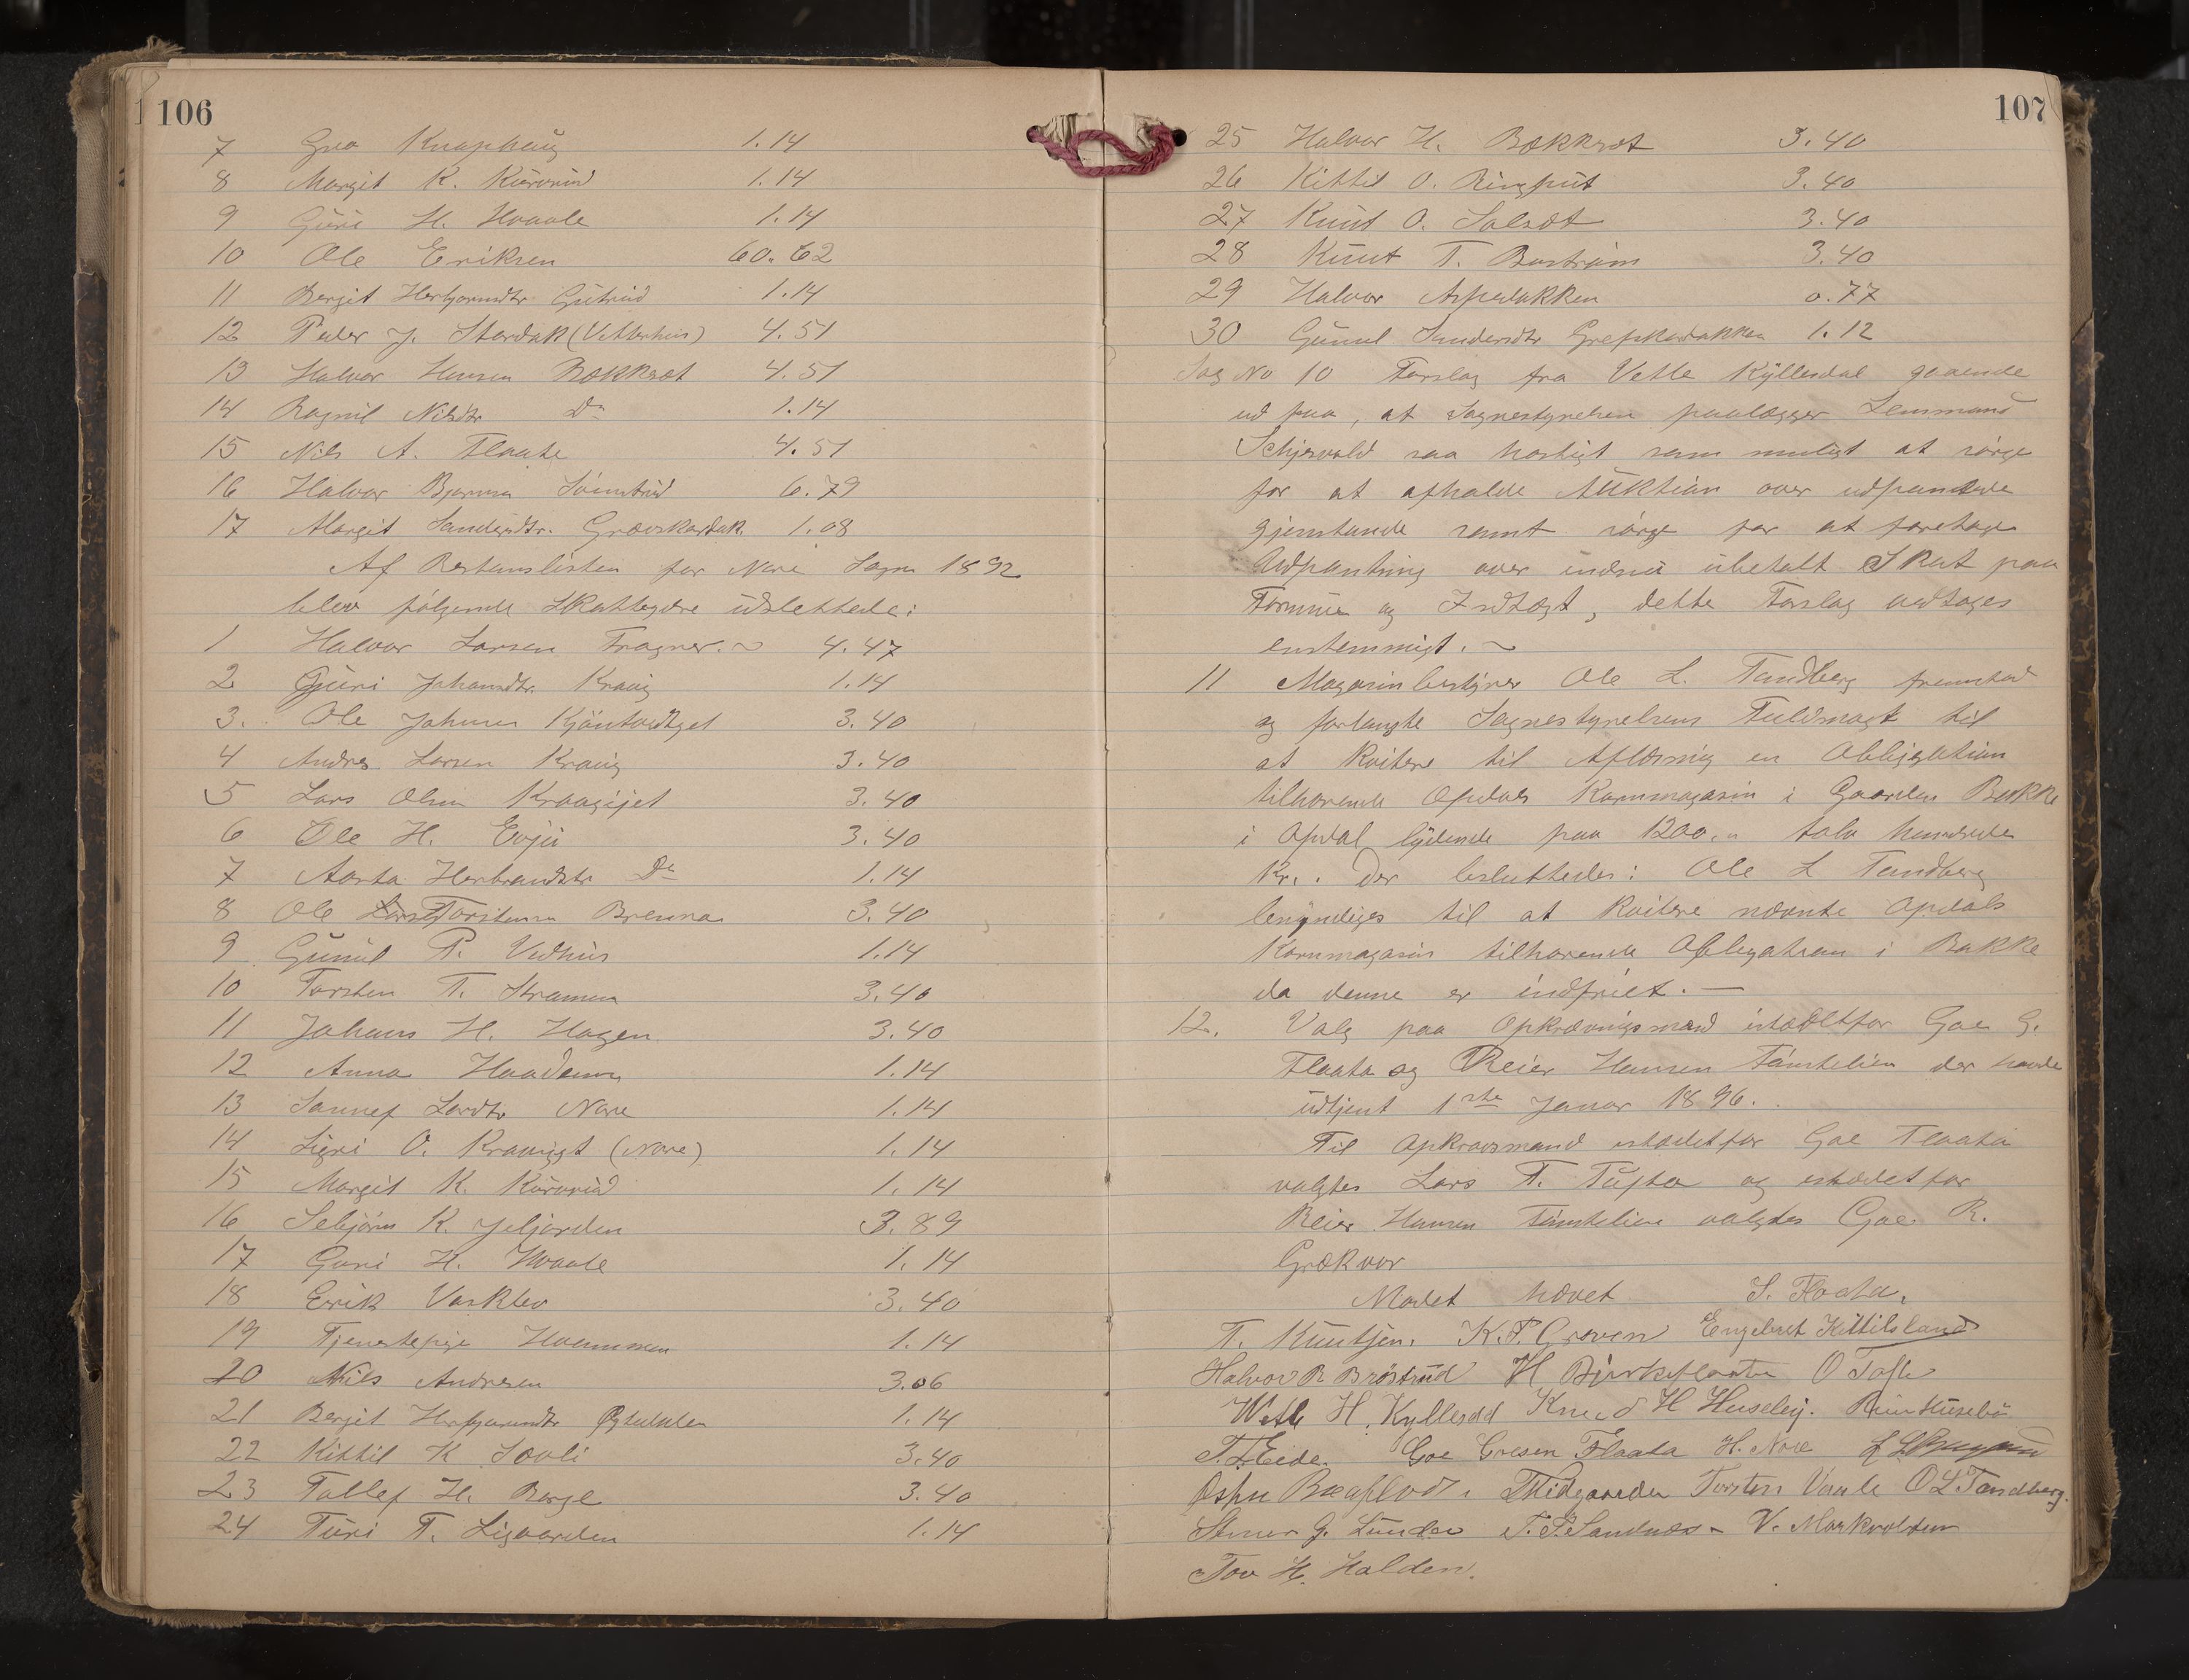 106
7 Gro Knaphaug 1.14
8 Margit K. Kurverud 1.14
9 Guri H. Hvaale 1.14
10 Ole Eriksen 60.62
11 Bergit Herbjørnsdtr Gutrud 1.14
12 Peder J. Stordak (Vetterhus) 4.51
13 Halvor Hansen Bækksæt 4.51
14 Ragnil Nilsdtr Do 1.14
15 Nils A. Flaata 4.51
16 Halvor Bjørnsen 6.79
17 Margit Sandersdtr. Grøvskardak. 1.08
Af Restanselisten for Nore Sogn 1892
blev følgende Skatteydere udslettede:
1 Halvor Larsen Fragner. ~ 4.47
2 Guri Johansdtr. Kravig 1.14
3. Ole Johnsen 3.40
4 Andres Larsen Kravig 3.40
5 Lars Olsen Kraagijet 3.40
6 Ole H. Evju 3.40
7 Aasta Herbrandsdtr Do 1.14
8 Ole Torstensen Brenna 3.40
9 Gunil P. Vedhus 1.14
10 Torsten T. Strømmen 3.40
11 Johans H. Hagen 3.40
12 Anna Haadem 1.14
13 Sannef Larsdtr Nore 1.14
14 Sigri O. Kravigjt (Nore) 1.14
15 Margit K. Kurverud 1.14
16 Sebjørn K. Jeljorden 3.89
17 Guri H. Hvaale 1.14
18 Erik Vasklev 3.40
19 Tjenestepige 1.14
20 Nils Andresen 3.06
21 Bergit Herbjørnsdtr 1.14
22 Kittil K Sovli 3.40
23 Tollef H. Berge 3.40
24 Turi T. Ligaarden 1.14
107
25 Halvor H. Bækksæt 3.40
26 Kittil O. Ringhut 3.40
27 Knut O. Solsæt 3.40
28 Knut T. Bostrøm 3.40
29 Halvor Aspedakken 0.77
30 Gunil Sandersdtr Grefskardakken 1.12
Sag No 10 Forslag fra Vetle Kyllesdal gaaende
ud paa, at Sognestyrelsen paalægger Lensmand
Schjervold saa hastigt som muligt at sørge
for at afholde Auktion over udpantede
gjenstande samt sørge for at foretage
Udpantning over endnu ubetalt Skat paa
Formue og Indtægt, dette Forslag vedtages
enstemmigt. ~
11 Magasinbestyrer Ole L. Tandberg fremstod
og forlangte Sognestyrelsens Fuldmagt til
at kvitere til Aflæsning en Obligation
tilhørende Opdals Kornmagasin i Gaarden Bakke
i Opdal lydende paa 1200.,, tolv hundrede
Kr.. Der besluttedes: Ole L Tandberg
bemyndiges til at kvitere nævnte Opdals
Kornmagasin tilhørende Obligation i Bakke
da denne er indfriet. —
12. Valg paa Opkrævningsmænd istædetfor Goe G.
Flaata og Reier Hansen Tømtelien der havde
udtjent 1ste Januar 1896.
Til Opkrævsmænd istædetfor Goe Flaata
valgtes Lars T. Tufta og istædetfor
Reier Hansen Tømtelien valgtes Goe R.
Grækvor
Mødet hævet S. Flaata.
T. Knutsen. K. T. Groven Engebret Kittilsland
Halvor R Brøstrud H Birkeflaaten O Tofte
Vetle H. Kyllesdal Knud H Huseby. Reier Husebø
T. T. Eide. Goe Gresen Flaata H. Nore
Midgaarden Torsten Vaale O L Tandberg.
Steiner G. Lunden T. T. Sandnæs. V. Markvolsen
Tov H. Halden.